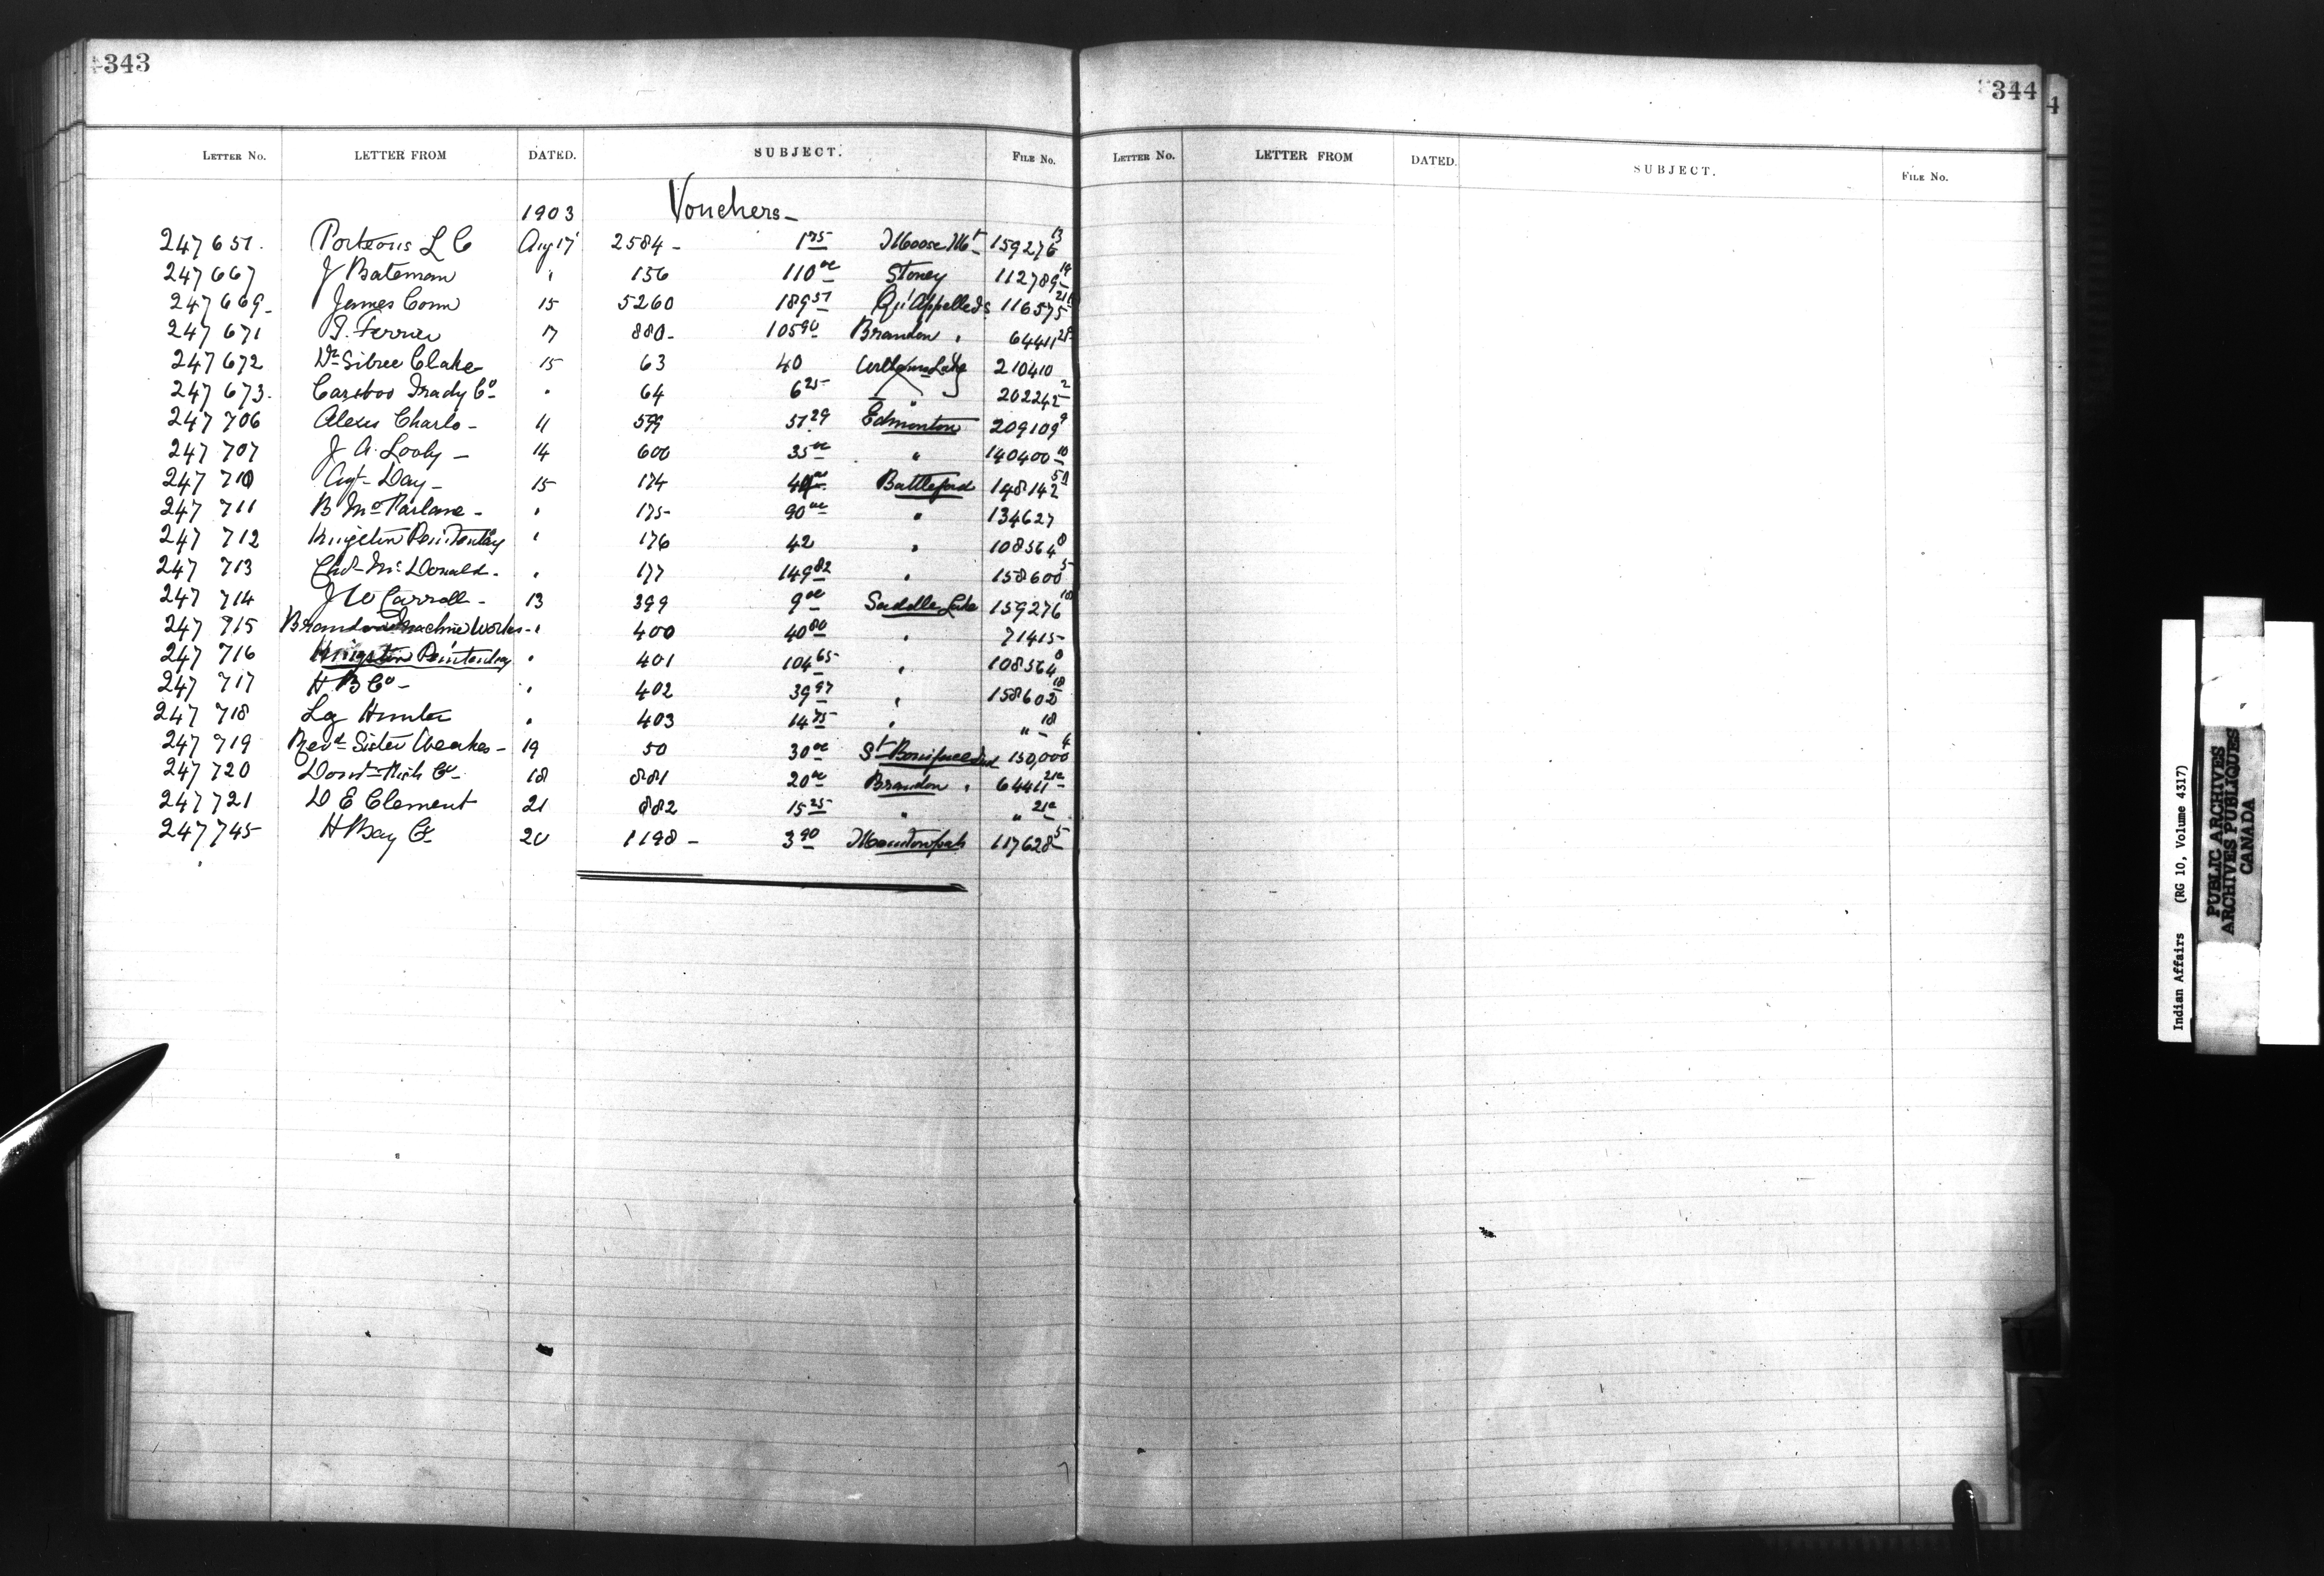 343
LETTER NO. LETTER FROM DATED. SUBJECT. FILE NO.
1903 Vouchers-
247651. Porteous L C Aug 17 2584- 1 75 Moose Mt 159276 13
247667 J Bateman " 156 110 00 Stoney 112789 14
247669- James Conn 15 5260 189 51 Qu'Appelle Ids 116575
247671 T. Ferrier 17 880- 105 90 Brandon " 64411
247672 Dr Sibree Clarke 15 63 40 Williams Lake 210410
247673. Cariboo Trady Co " 64 6 25 " 202242 2
247706 Alexis Charlo- 11 599 51 29 Edmonton 209109 9
247707 J A. Looby- 14 600 35 00 " 140400 10
247710 Agt Day- 15 174 Battleford 148142
247711 B McParlane- " 175- 90 00 " 134627
247712 Kingston Penitentiary " 176 42 " 108564 8
247713 Chs McDonald- " 177 149 82 " 158600 5
247714 J W Carroll- 13 399 9 00 Saddle Lake 159276 10
247715 Brandon Machine Works- " 400 40 80 " 71415
247716 Kingston Penitentiary " 401 104 65 " 108564 8
247717 H B Co- " 402 39 97 " 158602 18
247718 Hunter " 403 14 75 " " 18
247719 Revd Sister 19 50 30 00 St Boniface Ind 150,000 4
247720 Domn Fish Co- 18 881 20 00 Brandon " 64411 21a
247721 D E Clement 21 882 15 25 " " 21a
247745 H Bay Co 20 1198- 3 90 Manitowpah 117628 5
344
LETTER NO. LETTER FROM DATED. SUBJECT. FILE NO.
4
Indian Affairs (RG 10, Volume 4317)
PUBLIC ARCHIVES
ARCHIVES PUBLIQUES
CANADA